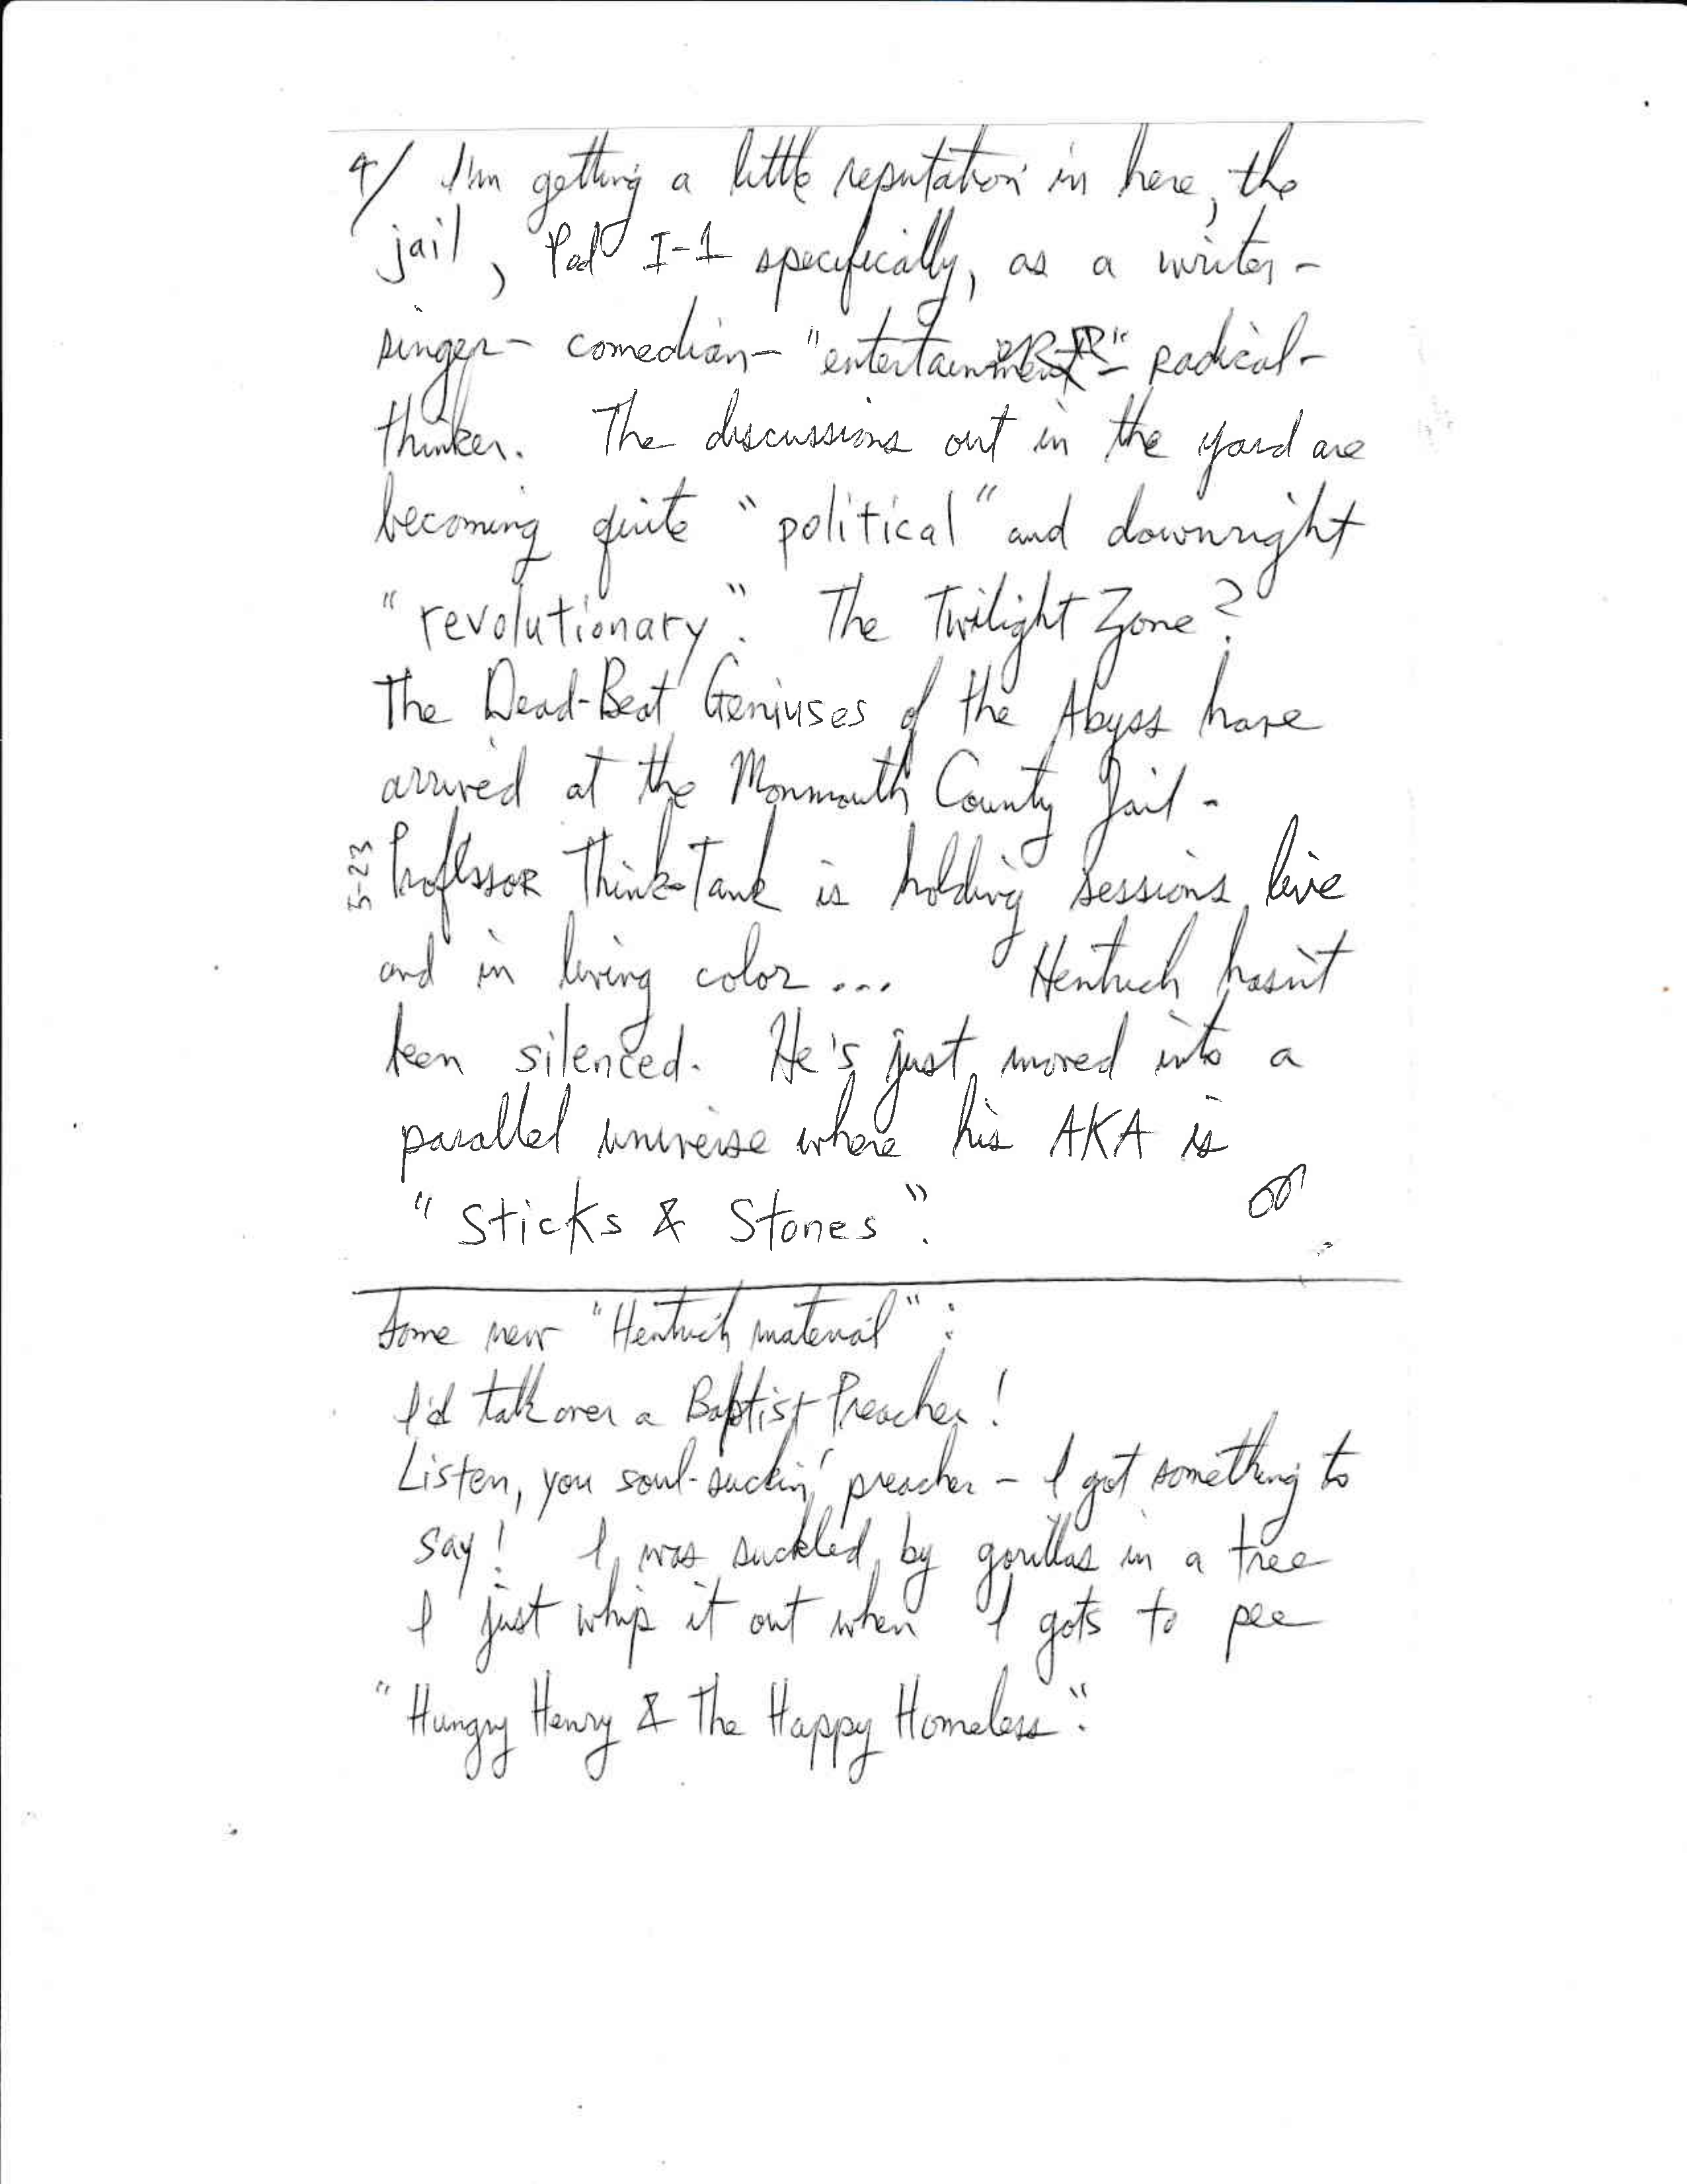 4/ I'm getting a little reputation in here, the
jail, Pod I-1 specifically, as a writer-
singer- comedian- "entertainER"- Radical-
thinker. The discussions out in the yard are
becoming quite "political" and downright
"revolutionary". The Twilight Zone?
The Dead-Beat Geniuses of the Abyss have
arrived at the Monmouth County Jail-
5-23
Professor Think-Tank is holding sessions live
and in living color... Hentrich hasn't
been silenced. He's just moved into a
parallel universe where his AKA is
"Sticks & Stones".
Some new "Hentrich material":
I'd talk over a Baptist Preacher!
Listen, you soul-suckin' preacher - I got something to
say! I was suckled by gorillas in a tree
I just whip it out when I gots to pee
"Hungry Henry & The Happy Homeless".